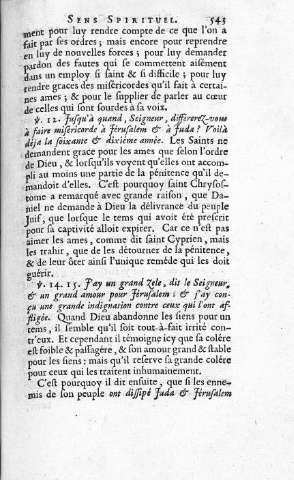 SENS SPIRITUEL. 543
ment pour luy rendre compte de ce que l'on a
fait par ses ordres; mais encore pour reprendre
en luy de nouvelles forces; pour luy demander
pardon des fautes qui se commettent aisément
dans un employ si saint & si difficile; pour luy
rendre graces des miséricordes qu'il fait à certai-
nes ames; & pour le supplier de parler au cœur
de celles qui sont sourdes à sa voix.
℣. 12. Jusqu'à quand, Seigneur, differerez-vous
à faire misericorde à Jerusalem & à Juda? Voilà
déja la soixante & dixième année. Les Saints ne
demandent grace pour les ames que selon l'ordre
de Dieu, & lorsqu'ils voyent qu'elles ont accom-
pli au moins une partie de la pénitence qu'il de-
mandoit d'elles. C'est pourquoy saint Chrysos-
tome a remarqué avec grande raison, que Da-
niel ne demande à Dieu la délivrance du peuple
Juif, que lorsque le tems qui avoit été prescrit
pour sa captivité alloit expirer. Car ce n'est pas
aimer les ames, comme dit saint Cyprien, mais
les trahir, que de les détourner de la pénitence,
& de leur ôter ainsi l'unique remède qui les doit
guérir.
℣. 14. 15. J'ay un grand zele, dit le Seigneur,
& un grand amour pour Jerusalem: & j'ay con-
çu une grande indignation contre ceux qui l'ont af-
fligée. Quand Dieu abandonne les siens pour un
tems, il semble qu'il soit tout-à-fait irrité con-
tr'eux. Et cependant il témoigne icy que sa colère
est foible & passagère, & son amour grand & stable
pour les siens: mais qu'il reserve sa grande colère
pour ceux qui les traitent inhumainement.
C'est pourquoy il dit ensuite, que si les enne-
mis de son peuple ont dissipé Juda & Jérusalem